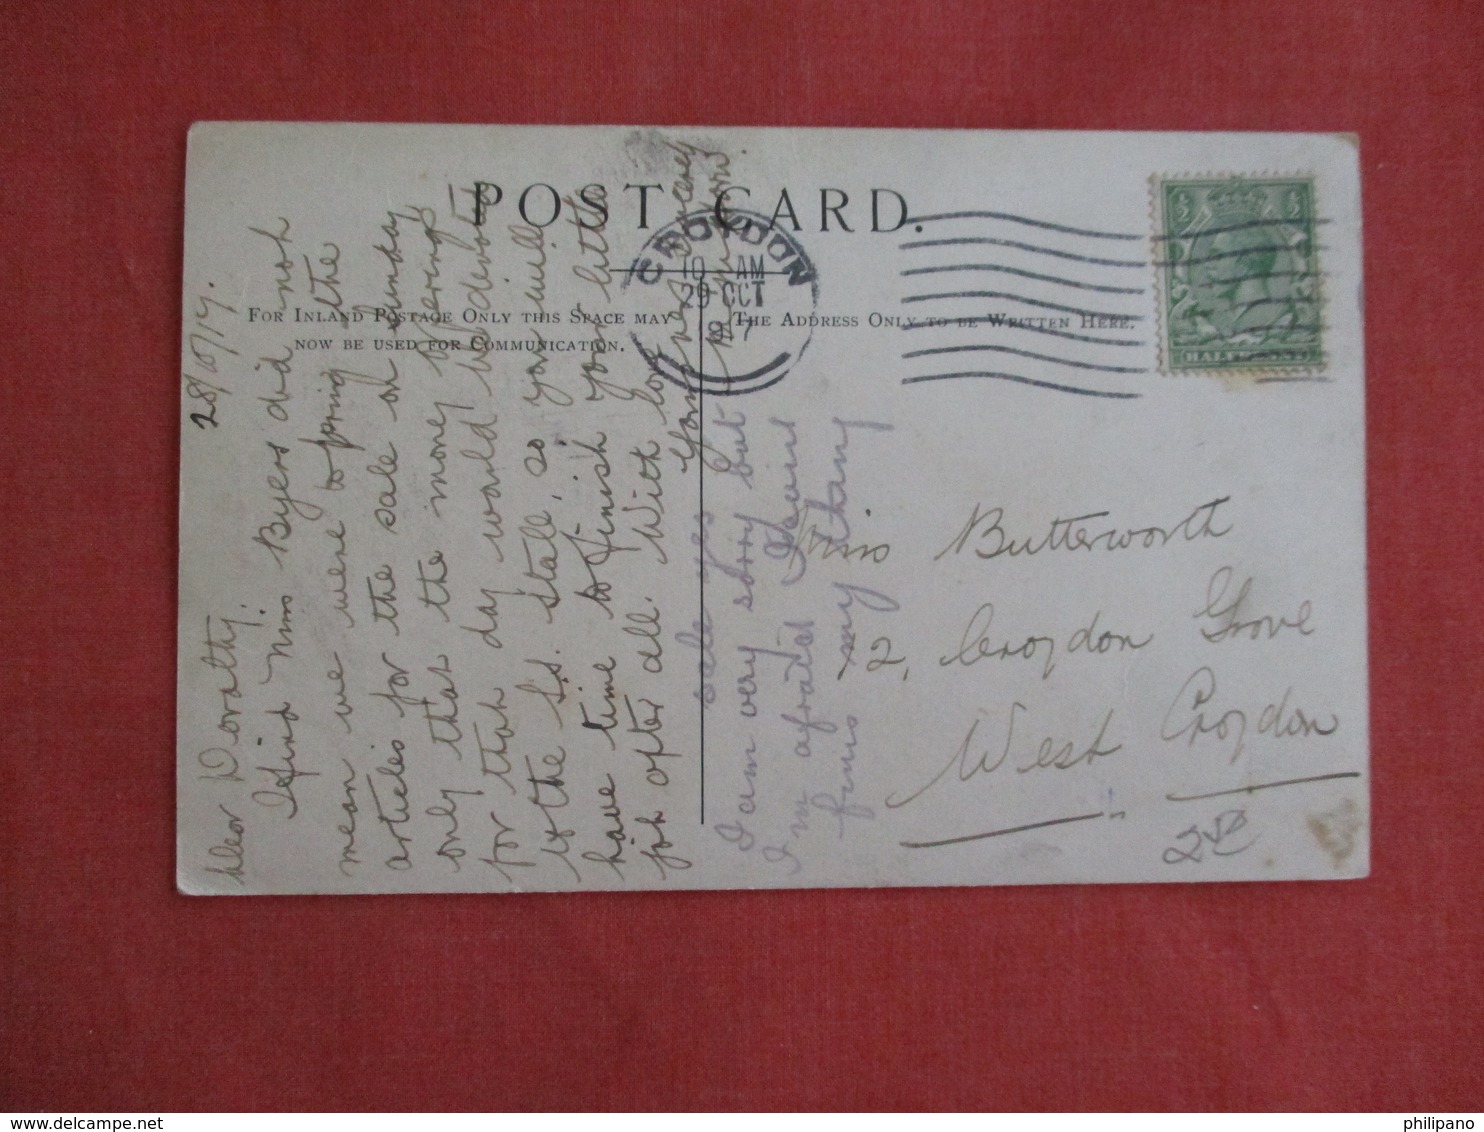 POST CARD.
For Inland Postage Only this Space may
now be used for Communication.
The Address Only to be Written Here.
CROYDON
10 AM
29 OCT
½ ½
HALFPENNY
28/10/17.
Dear Dorothy.
I find Miss Byers did not
mean we were to bring the
articles for the sale on Sunday
only that the money offerings
for that day would be devoted
to the S.S. stall, so you will
have time to finish your little
job after all. With love
Yours very sincerely
I am very sorry but
I'm afraid
my
Miss Butterworth
2, Croydon Grove
West Croydon
philipano